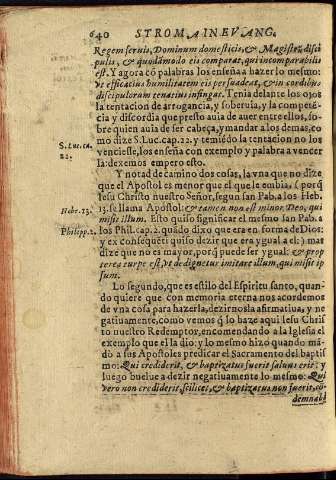 640 STROMA IN EVANG.
Regem seruis, Dominum domesticis, & Magistrũ disci
pulis, & quodãmodo eis comparat, qui incomparabilis
est. Y agora cõ palabras los enseña a hazer lo mesmo:
vt efficacius humilitatem eis persuadeat, & in cordibus
discipulorum tenacius infingat. Tenia delante los ojos
la tentacion de arrogancia, y soberuia, y la competẽ
cia y discordia que presto auia de auer entre ellos, so-
bre quien auia de ser cabeça, y mandar a los demas, co
S. Luc. ca.
22.
mo dize S. Luc. cap. 22. y temiẽdo la tentacion no los
venciesse, los enseña con exemplo y palabra a vencer
la: dexemos empero esto.
Y notad de camino dos cosas, la vna que no dize
que el Apostol es menor que el que le embia, (porq̃
Iesu Christo nuestro Señor, segun san Pab. a los Heb.
Hebr. 13.
13. se llama Apostol: & tamen non est minor Deo, qui
misit illum. Esto quiso significar el mesmo san Pab. a
Philipp. 2.
los Phil. cap. 2. quãdo dixo que era en forma de Dios:
y ex consequẽti quiso dezir que era ygual a el:) mas
dize que no es mayor, porq̃ puede ser ygual: & prop
terea turpe est, vt dedignetur imitare illum, qui misit ip
sum.
Lo segundo, que es estilo del Espiritu santo, quan-
do quiere que con memoria eterna nos acordemos
de vna cosa para hazerla, dezirnos la afirmatiua, y ne
gatiuamente, como vemos q̃ lo haze aqui Iesu Chris
to nuestro Redemptor, encomendando a la Iglesia el
exemplo que el la dio: y lo mesmo hizo quando mã-
dò a sus Apostoles predicar el Sacramento del baptis
mo: Qui crediderit, & baptizatus fuerit saluus erit: y
luego buelue a dezir negatiuamente lo mesmo: Qui
vero non crediderit, scilicet, & baptizatus non fuerit, cõ-
demnabi